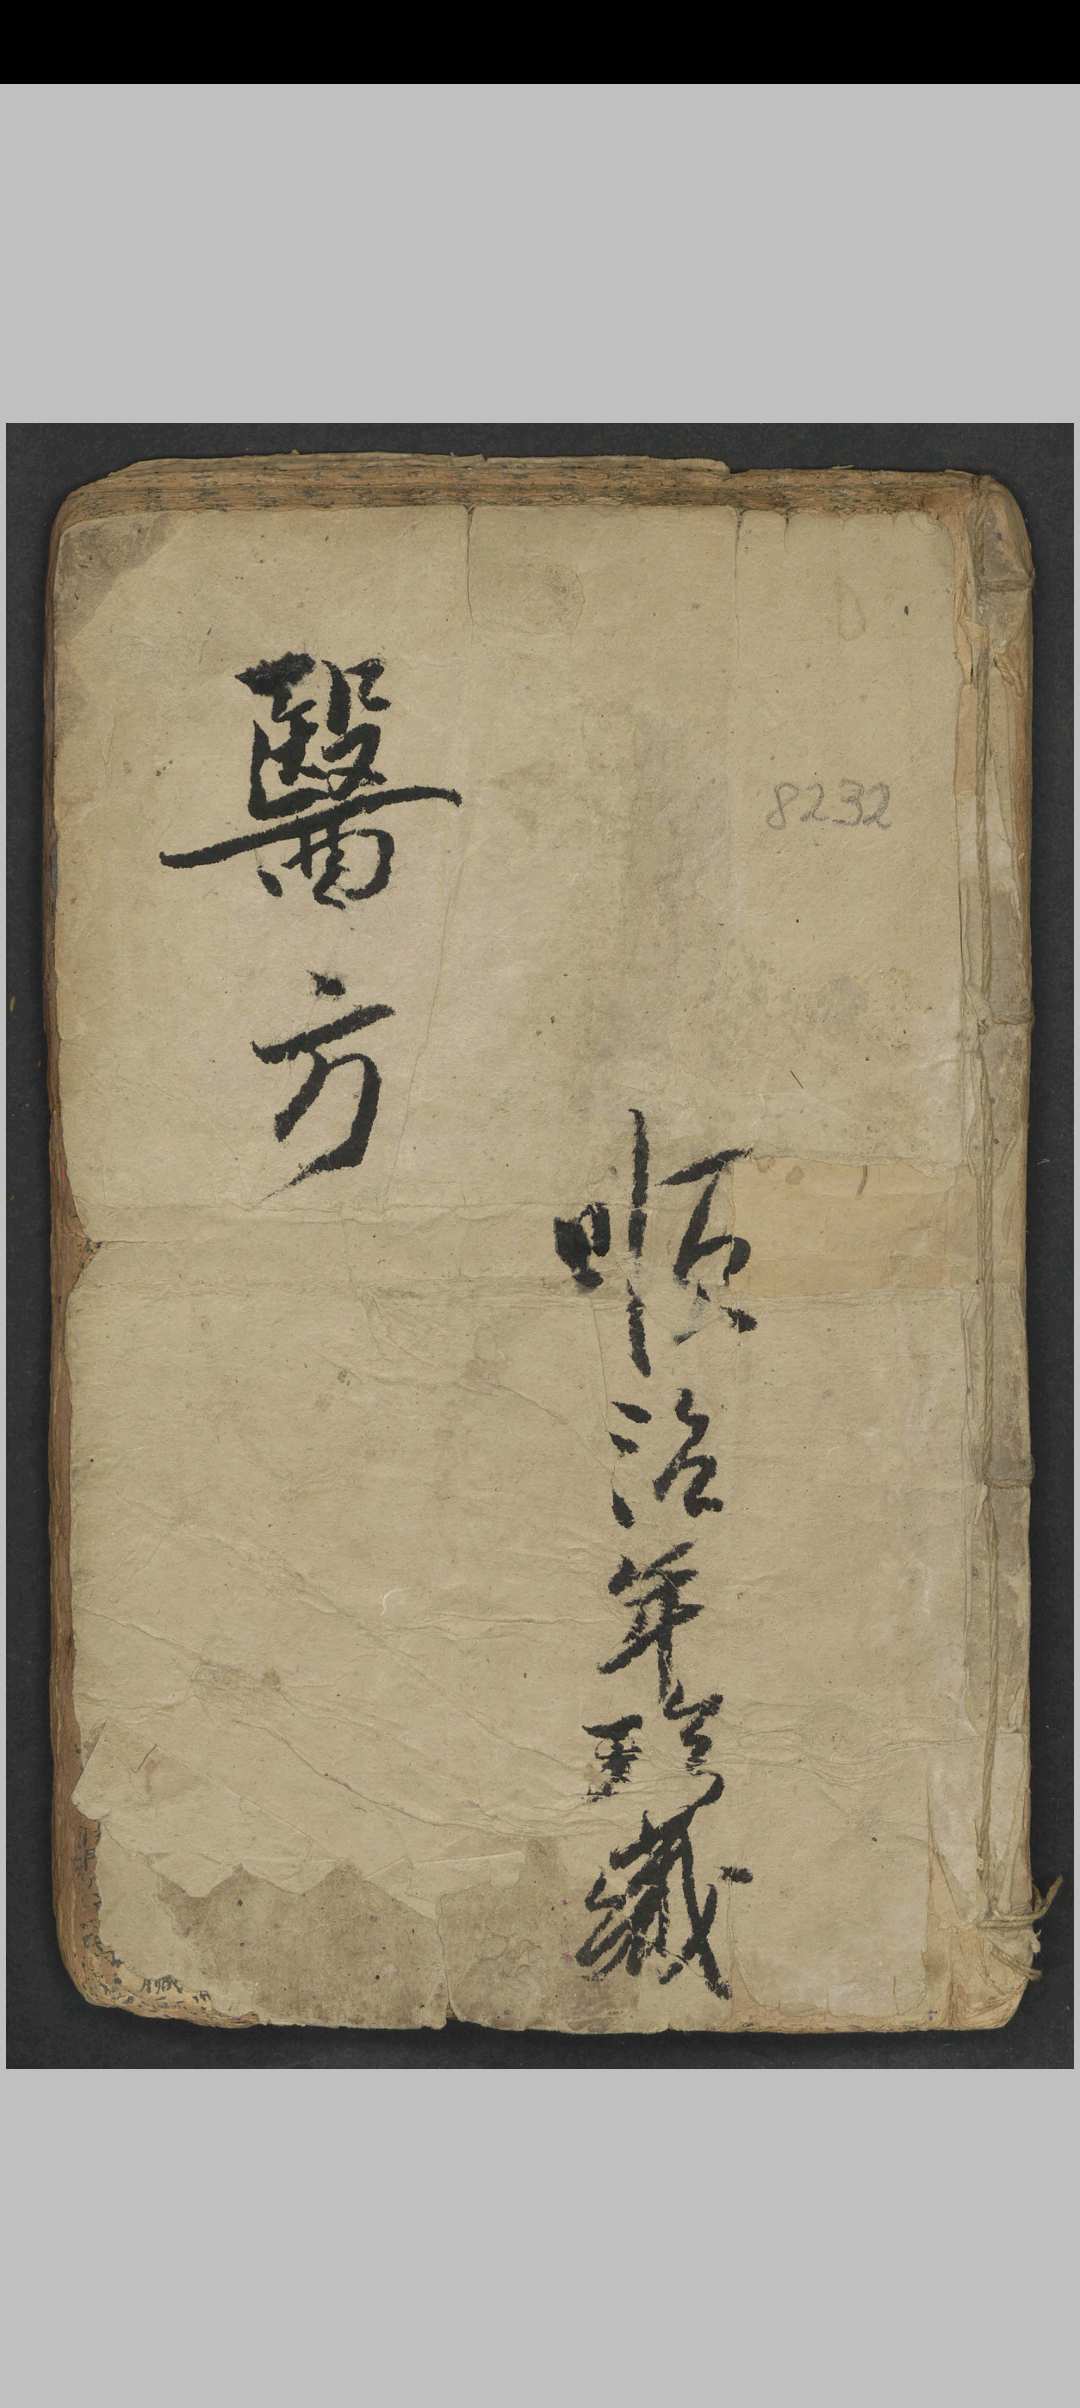 8232
順治年珍藏
醫方